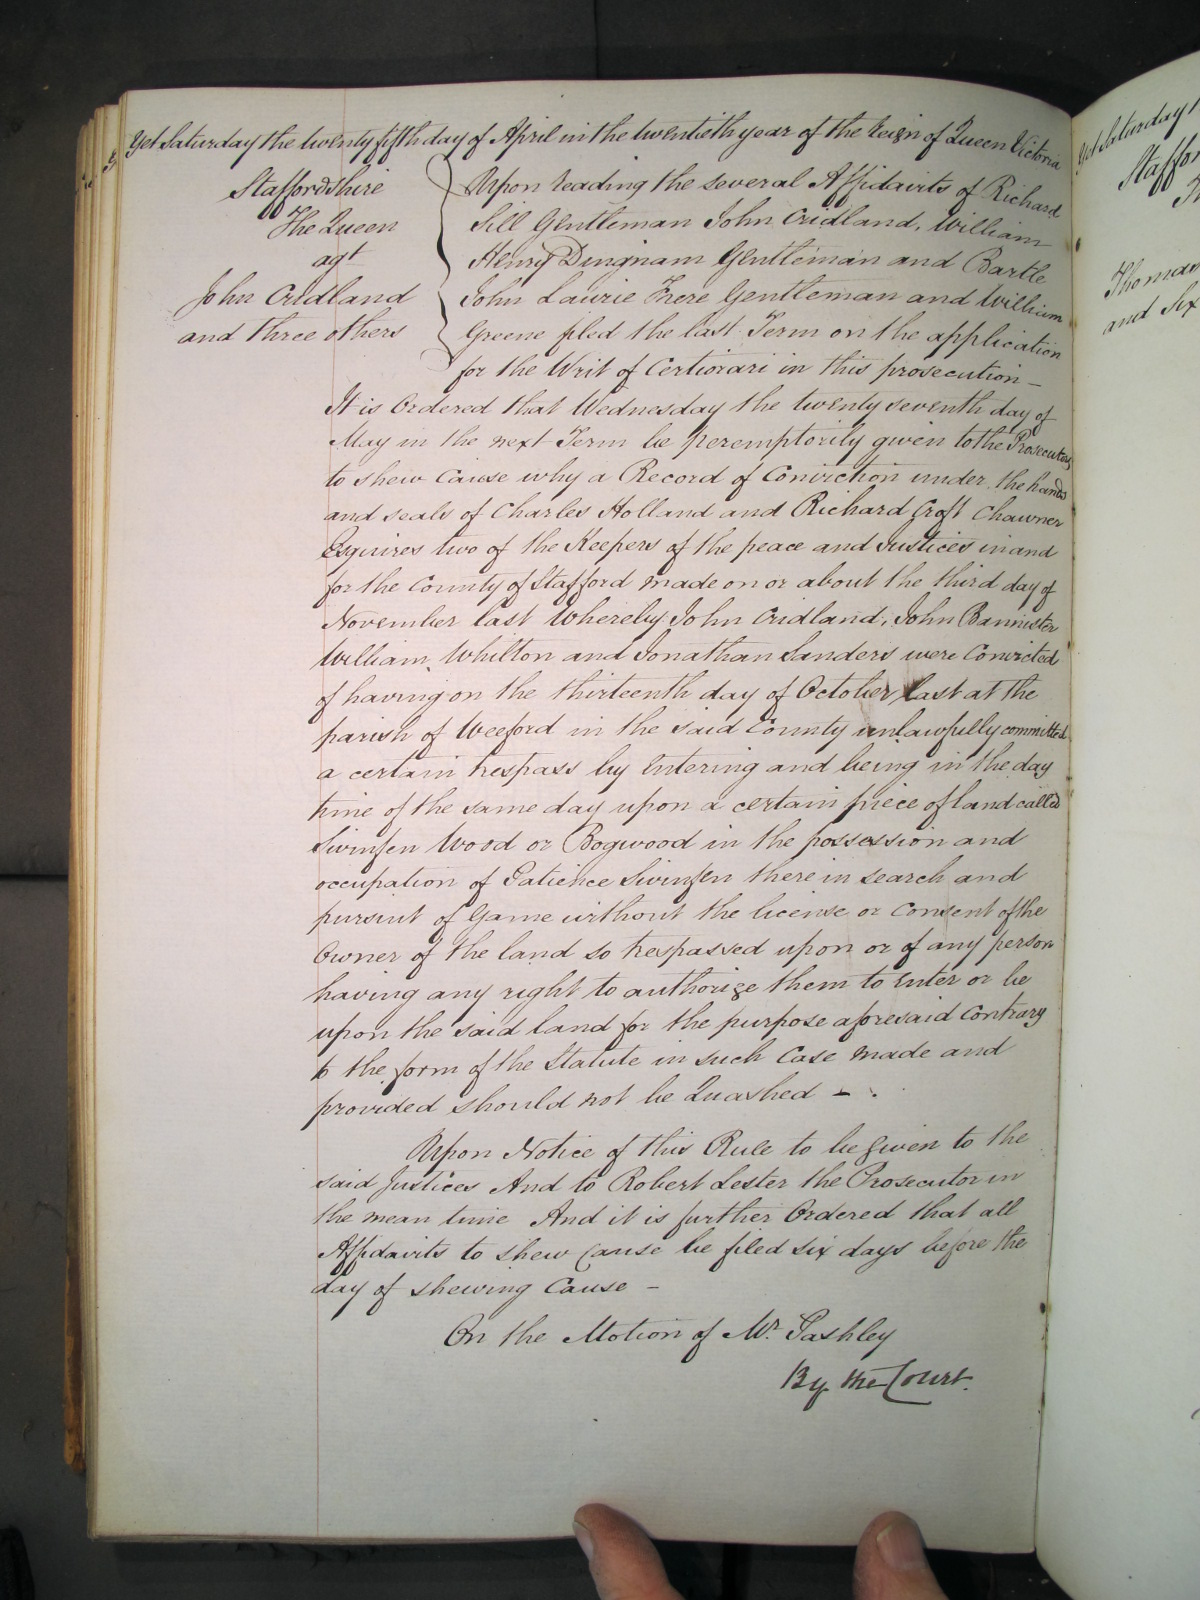 Yet Saturday the twenty fifth day of April in the twentieth year of the Reign of Queen Victoria
Staffordshire
The Queen
agt
John Cridland
and three others
Upon reading the several Affidavits of Richard
Sill Gentleman John Cridland, William
Henry Dingnam Gentleman and Bartle
John Laurie Frere Gentleman and William
Greene filed the last Term on the application
for the Writ of Certiorari in this prosecution —
It is Ordered that Wednesday the twenty seventh day of
May in the next Term be peremptorily given to the Prosecutors
to shew Cause why a Record of Conviction under the hands
and seals of Charles Holland and Richard Croft Chawner
Esquires two of the Keepers of the peace and Justices in and
for the County of Stafford made on or about the third day of
November last Whereby John Cridland, John Bannister
William Whilton and Jonathan Sanders were Convicted
of having on the thirteenth day of October last at the
parish of Weeford in the said County unlawfully committed
a certain trespass by Entering and being in the day
time of the same day upon a certain piece of land called
Swinfen Wood or Bogwood in the possession and
occupation of Patience Swinfen there in search and
pursuit of Game without the license or Consent of the
Owner of the land so trespassed upon or of any person
having any right to authorize them to Enter or be
upon the said land for the purpose aforesaid Contrary
to the form of the Statute in such Case made and
provided should not be Quashed —
Upon Notice of this Rule to be given to the
said Justices And to Robert Lester the Prosecutor in
the mean time And it is further Ordered that all
Affidavits to shew Cause be filed six days before the
day of shewing Cause —
On the Motion of Mr. Pashley
By the Court.
Yet Saturday
Staffor
Thomas
and Six